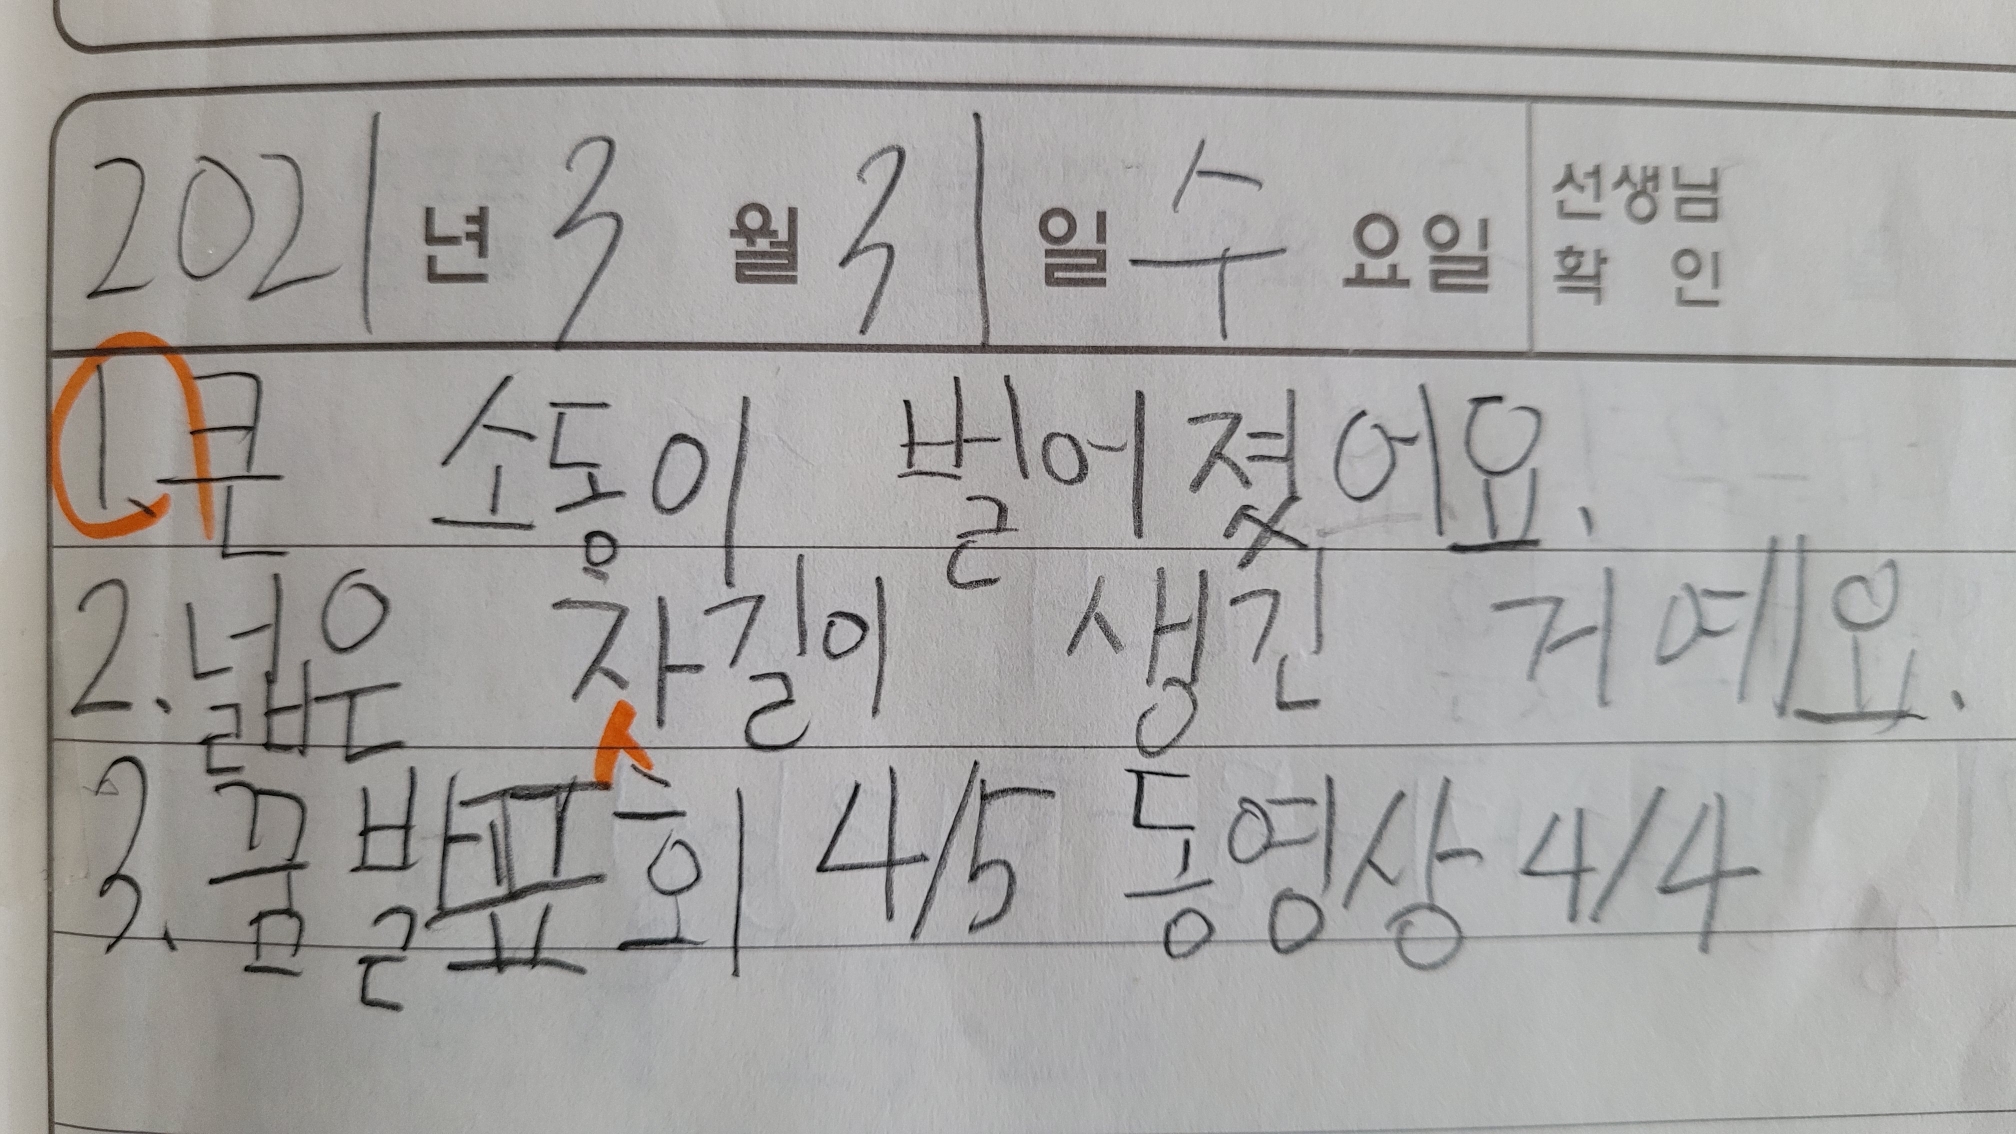 2021년 3월 31일 수요일 선생님 확인
1. 큰 소동이 벌어졌어요.
2. 넓은 자길이 생긴 거예요.
3. 꿈발표회 4/5 동영상 4/4